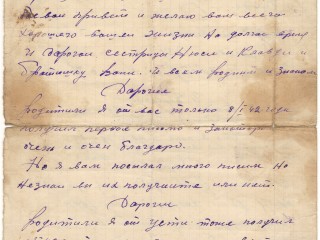 свой привет и желаю вам всего
хорошего вашей жизни на долгая время
И дорогой сестрицы Нюси и Клавди и
братишку Вани. И всем родним и знаком
Дорогие
родители я от вас только 8/I-42 года
получил первое письмо и
очень и очень благодарю.
Но я вам посылал много письм но
незнаю вы их получаите или нет.
Дорогие
родители я от тети тоже получил